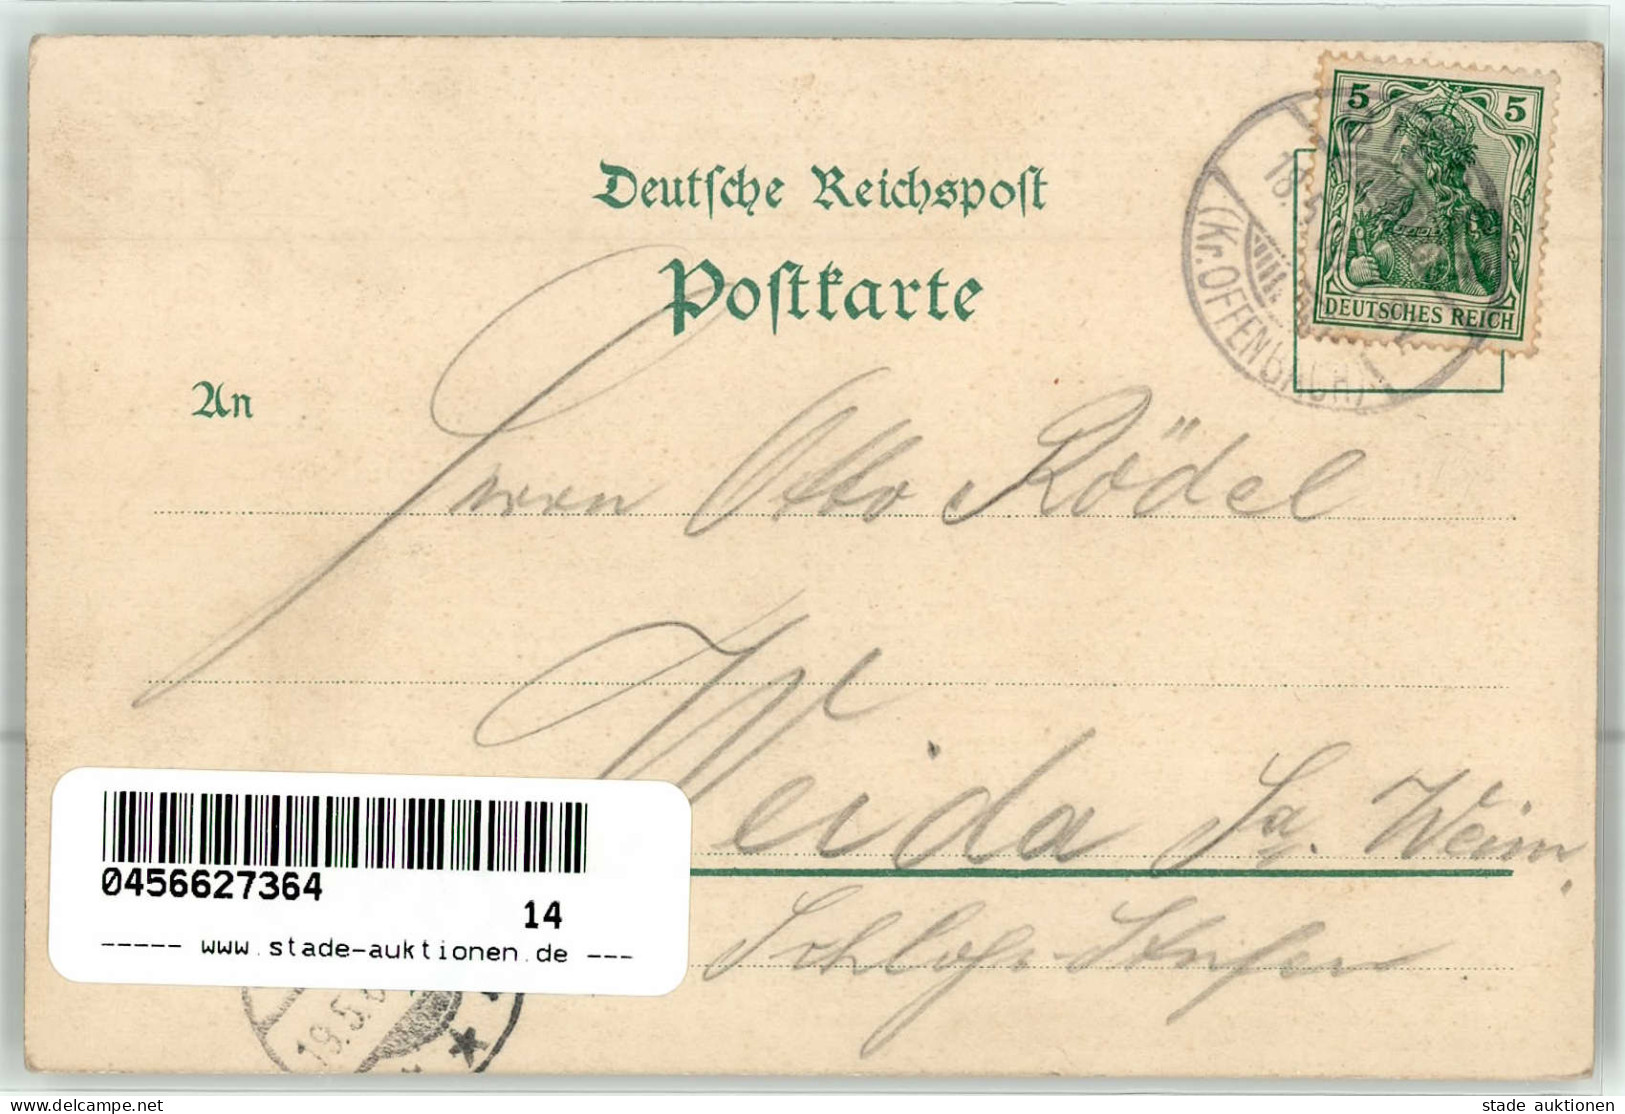 5 5
DEUTSCHES REICH
18. 5
(Kr. OFFENBACH)
Deutsche Reichspost
Postkarte
An
Herrn Otto Rödel
Weida Sa. Weim.
Schloss-Stufen
0456627364
14
----- www.stade-auktionen.de ---
19.5.0
stade auktionen